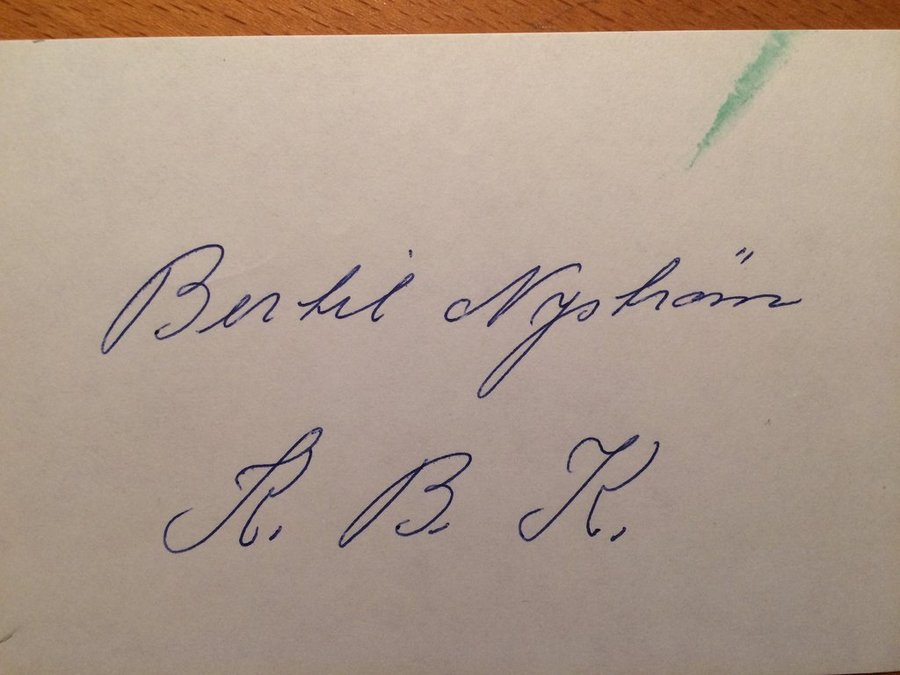 Bertil Nyström
K. B. K.